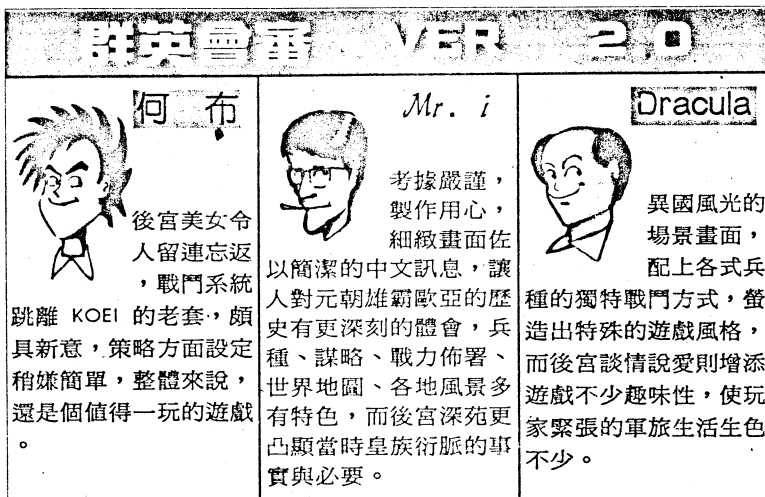 群英會審 VER 2.0
何布
後宮美女令
人留連忘返
，戰鬥系統
跳離 KOEI 的老套，頗
具新意，策略方面設定
稍嫌簡單，整體來說，
還是個值得一玩的遊戲
。
Mr. i
考據嚴謹，
製作用心，
細緻畫面佐
以簡潔的中文訊息，讓
人對元朝雄霸歐亞的歷
史有更深刻的體會，兵
種、謀略、戰力佈署、
世界地圖、各地風景多
有特色，而後宮深苑更
凸顯當時皇族衍脈的事
實與必要。
Dracula
異國風光的
場景畫面，
配上各式兵
種的獨特戰鬥方式，螢
造出特殊的遊戲風格，
而後宮談情說愛則增添
遊戲不少趣味性，使玩
家緊張的軍旅生活生色
不少。